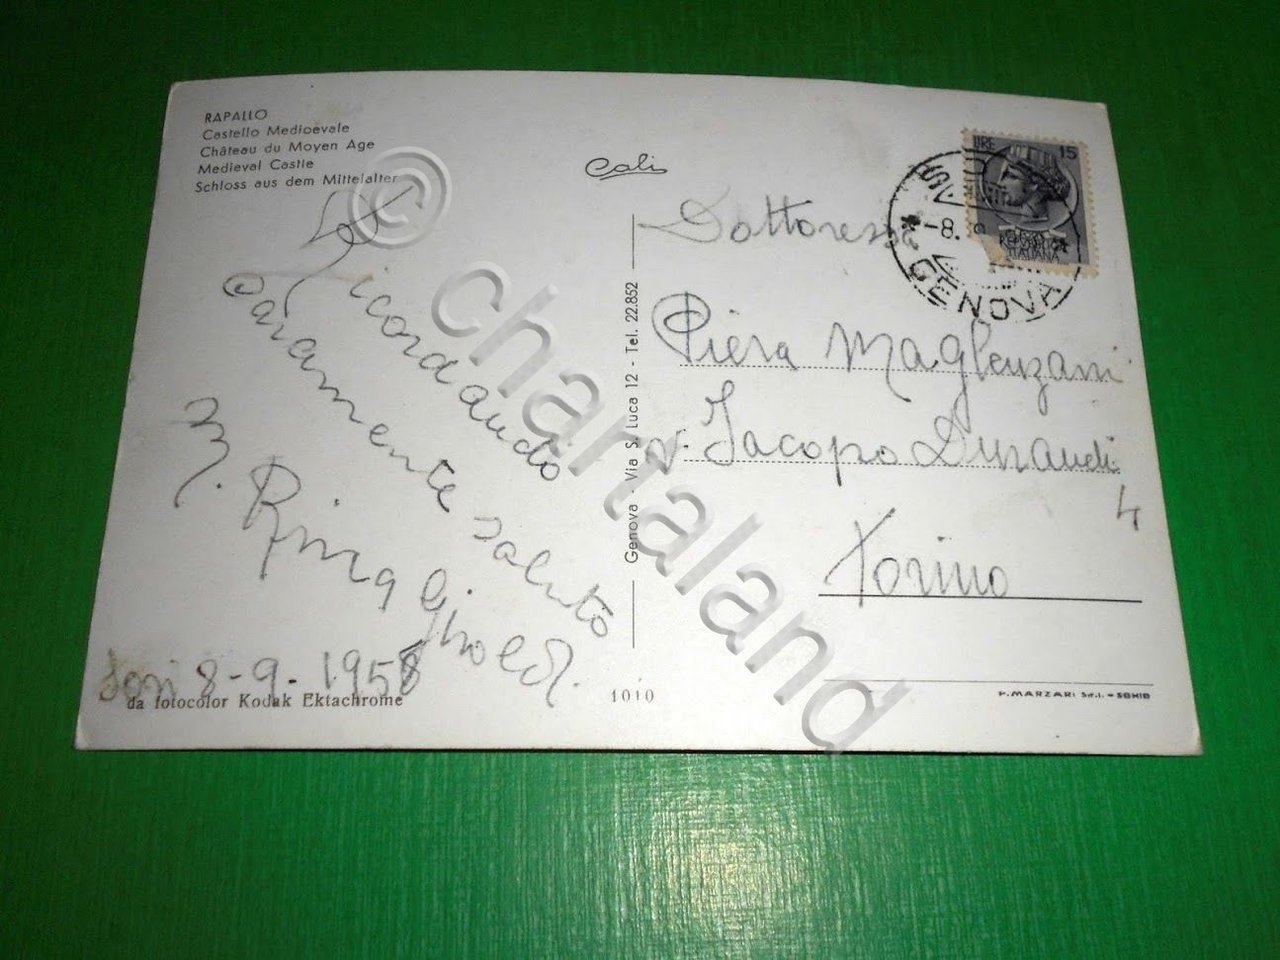 RAPALLO
Castello Medioevale
Château du Moyen Age
Medieval Castle
Schloss aus dem Mittelalter
Cali
LIRE 15
REPUBBLICA
ITALIANA
-8.
GENOVA
Dottoressa
Piera
v. Jacopo Durandi
4
Torino
Ricordando
caramente saluto
Sori 8-9-1958
Genova - Via S. Luca 12 - Tel. 22.852
da fotocolor Kodak Ektachrome
1010
P. MARZARI S.r.l. - SCHIO
© chartaland